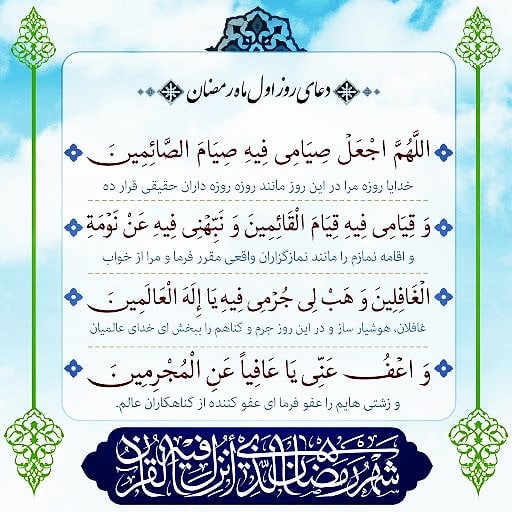 دعای روز اول ماه رمضان
اللَّهُمَّ اجْعَلْ صِیَامِی فِیهِ صِیَامَ الصَّائِمِینَ
خدایا روزه مرا در این روز مانند روزه روزه داران حقیقی قرار ده
وَ قِیَامِی فِیهِ قِیَامَ الْقَائِمِینَ وَ نَبِّهْنِی فِیهِ عَنْ نَوْمَةِ
و اقامه نمازم را مانند نمازگزاران واقعی مقرر فرما و مرا از خواب
الْغَافِلِینَ وَ هَبْ لِی جُرْمِی فِیهِ یَا إِلَهَ الْعَالَمِینَ
غافلان، هوشیار ساز و در این روز جرم و گناهم را ببخش ای خدای عالمیان
وَ اعْفُ عَنِّی یَا عَافِیاً عَنِ الْمُجْرِمِینَ
و زشتی هایم را عفو فرما ای عفو کننده از گناهکاران عالم.
شَهْرُ رَمَضَانَ الَّذِي أُنْزِلَ فِيهِ الْقُرْآنُ